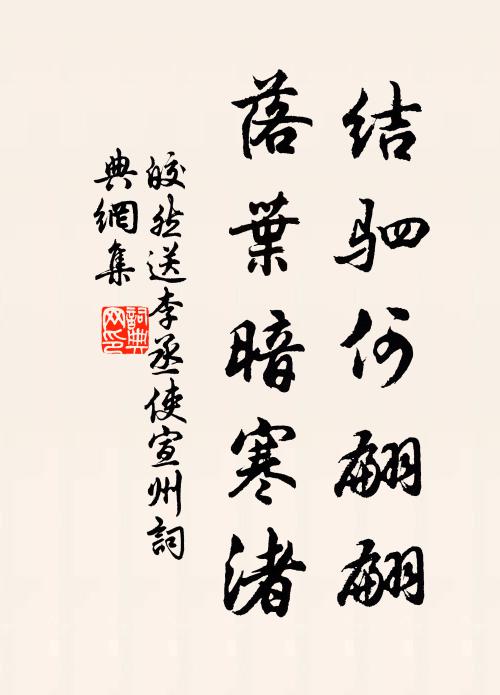 结驷何翩翩
落葉暗寒渚
皎然送李丞使宣州詞
典網集
詞典
网印